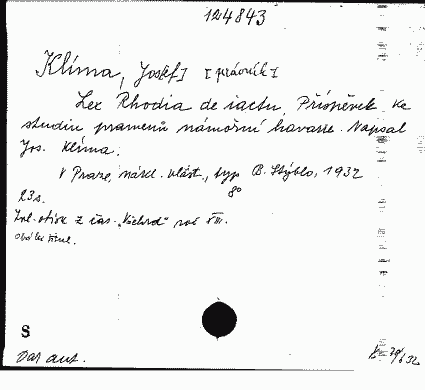 124843
Klíma, Josef] [právník]
Lex Rhodia de iactu. Příspěvek ke
studiu pramenů námořní havarie. Napsal
Jos. Klíma.
V Praze, nákl. vlast., typ. B. Stýblo, 1932
8°
23 s.
Zvl. otisk z čas. „Všehrd" roč. XIII.
S
Dar aut.